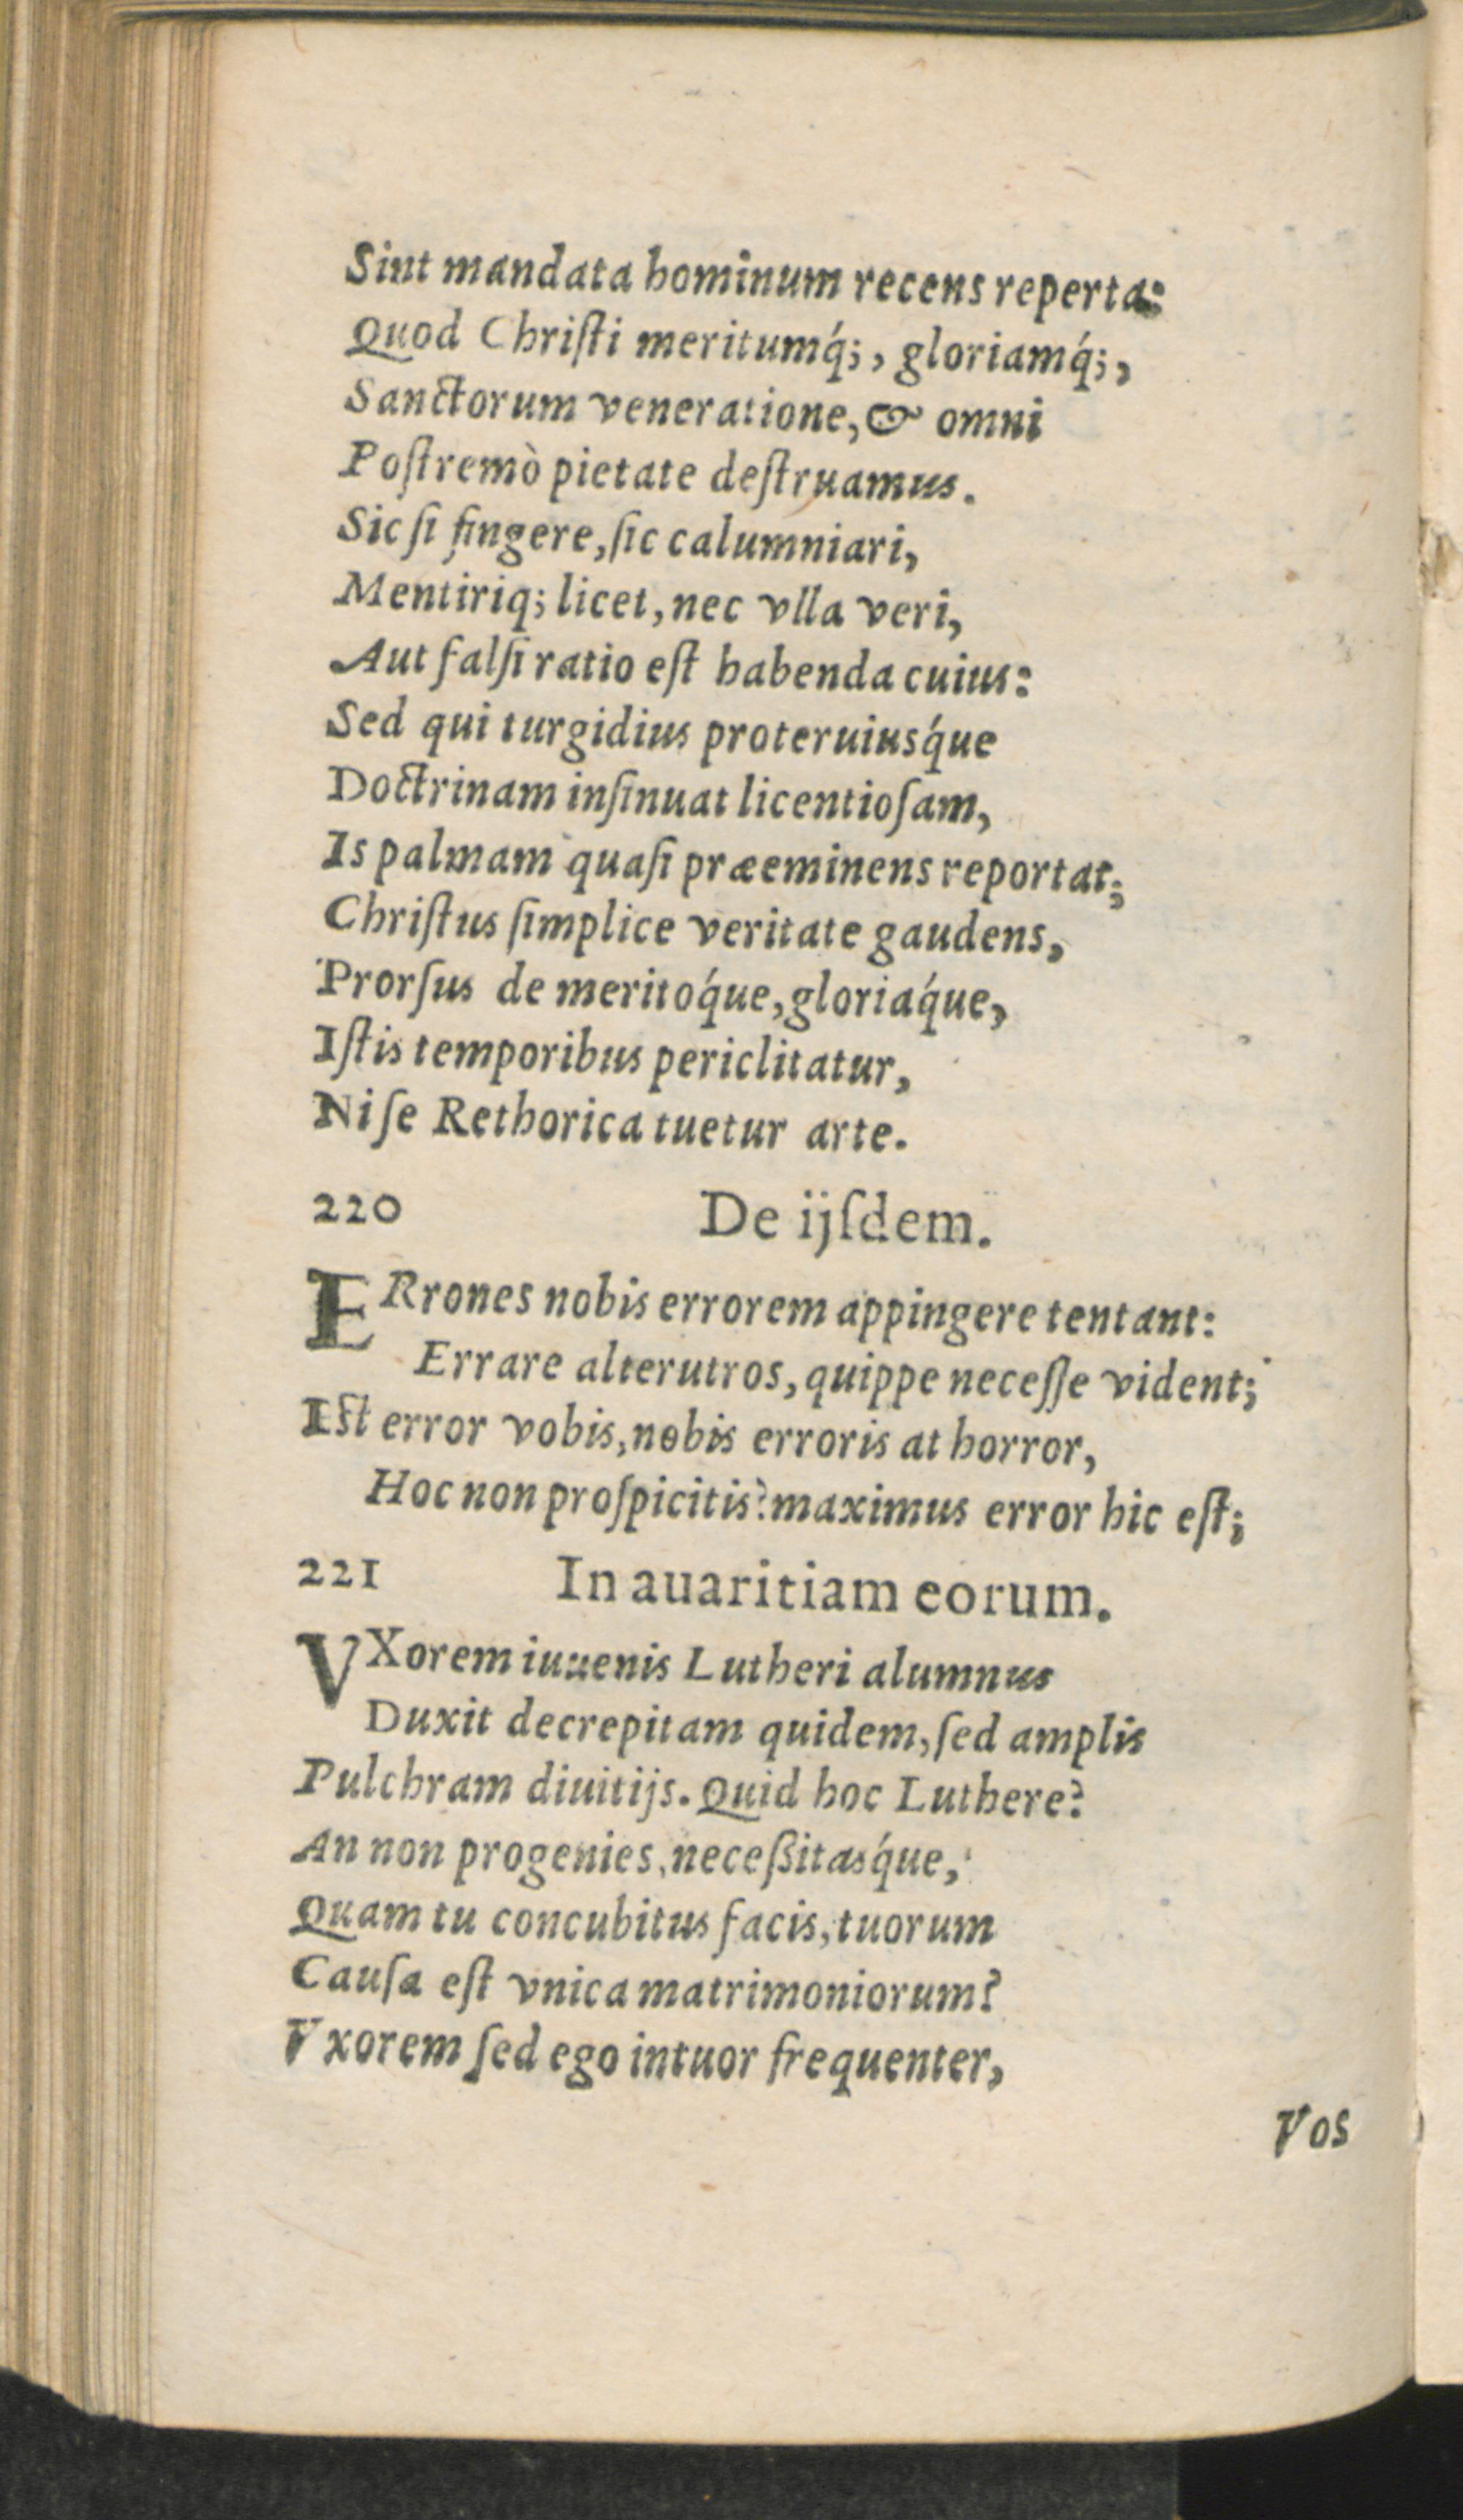 Sint mandata hominum recens reperta:
Quod Chriſti meritumq́;, gloriamq́;,
Sanctorum veneratione, & omni
Poſtremò pietate deſtruamus.
Sic ſi fingere, ſic calumniari,
Mentiriq; licet, nec vlla veri,
Aut falſi ratio eſt habenda cuius:
Sed qui turgidius proteruiusq́ue
Doctrinam inſinuat licentioſam,
Is palmam quaſi præeminens reportat;
Chriſtus ſimplice veritate gaudens,
Prorſus de meritoq́ue, gloriaq́ue,
Iſtis temporibus periclitatur,
Ni ſe Rethorica tuetur arte.
220 De ijſdem.
ERrones nobis errorem appingere tentant:
Errare alterutros, quippe neceſſe vident;
Eſt error vobis, nobis erroris at horror,
Hoc non proſpicitis? maximus error hic eſt;
221 In auaritiam eorum.
VXorem iuuenis Lutheri alumnus
Duxit decrepitam quidem, ſed amplis
Pulchram diuitijs. Quid hoc Luthere?
An non progenies, neceſsitasq́ue,
Quam tu concubitus facis, tuorum
Cauſa eſt vnica matrimoniorum?
Vxorem ſed ego intuor frequenter,
Vos